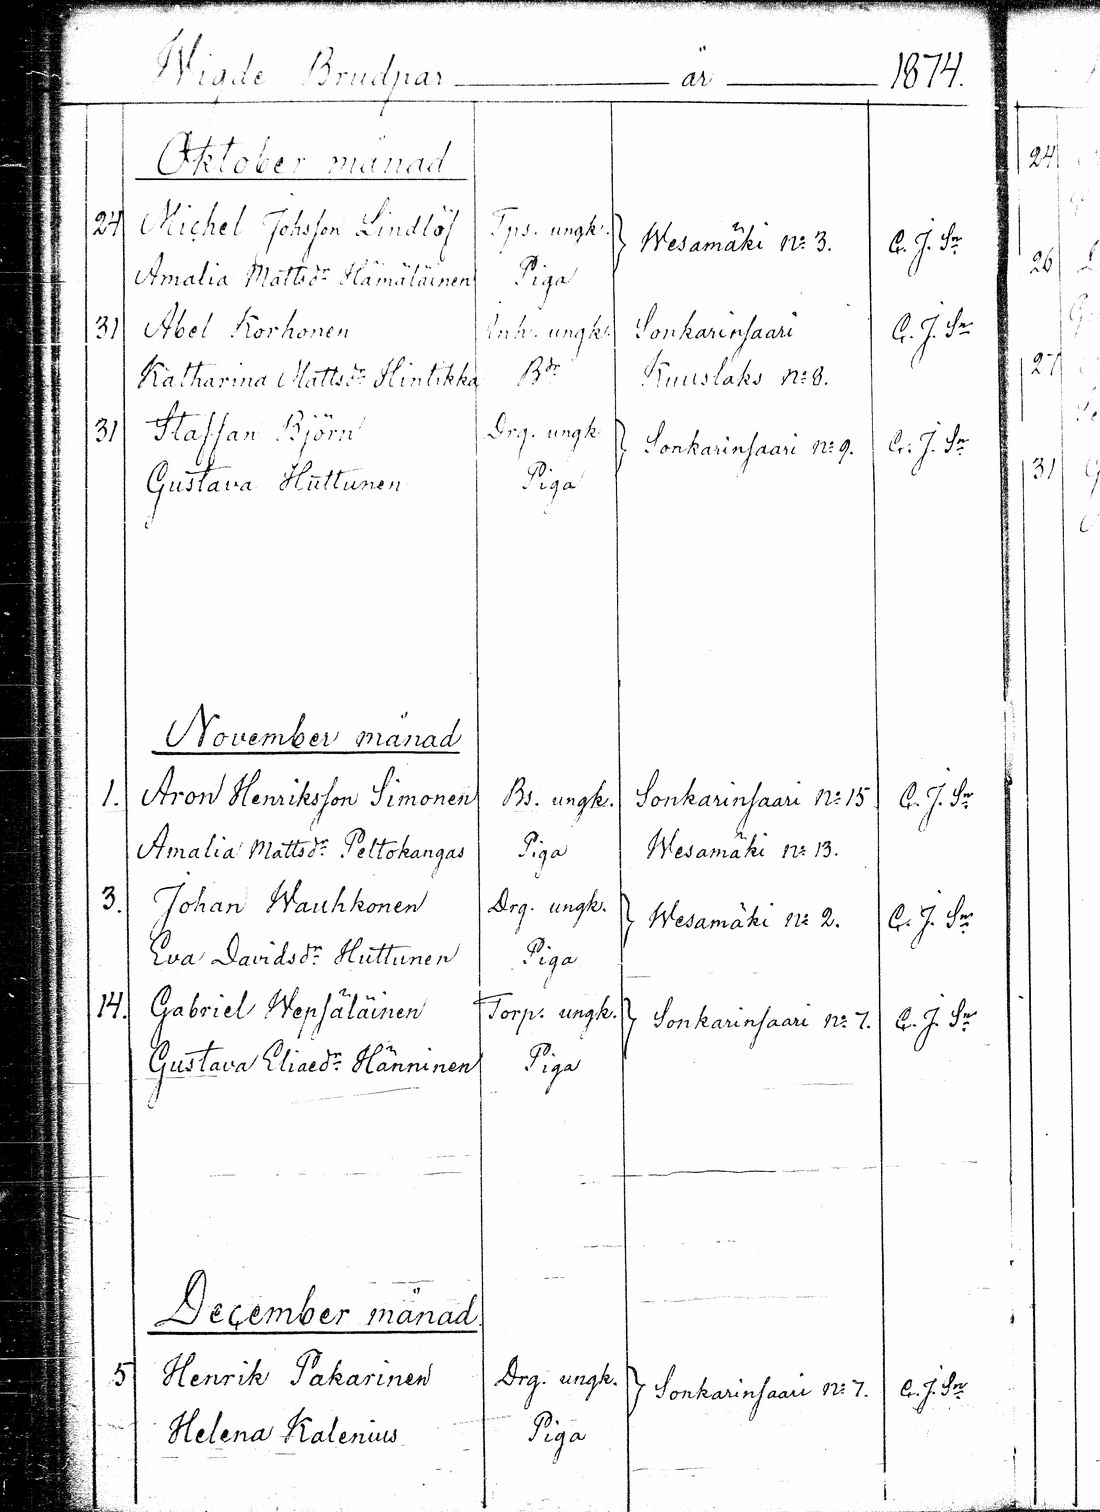 Wigde Brudpar år 1874.
Oktober månad
24 Michel Johsson Lindlöf Tps. ungk. } Wesamäki No 3. C. J. Sn
Amalia Mattsdr Hämäläinen Piga
31 Abel Korhonen Inh. ungk. Sonkarinsaari C. J. Sn
Katharina Mattsdr Hintikka Bdr Kuuslaks No 8.
31 Staffan Björn Drg. ungk } Sonkarinsaari No 9. C. J. Sn
Gustava Huttunen Piga
November månad
1. Aron Henriksson Simonen Bs. ungk. Sonkarinsaari No 15 C. J. Sn
Amalia Mattsdr Peltokangas Piga Wesamäki No 13.
3. Johan Wauhkonen Drg. ungk. } Wesamäki No 2. C. J. Sn
Eva Davidsdr Huttunen Piga
14. Gabriel Wepsäläinen Torp. ungk. } Sonkarinsaari No 7. C. J. Sn
Gustava Eliaedr Hänninen Piga
December månad
5 Henrik Pakarinen Drg. ungk. } Sonkarinsaari No 7. C. J. Sn
Helena Kalenius Piga
24
26
27
31